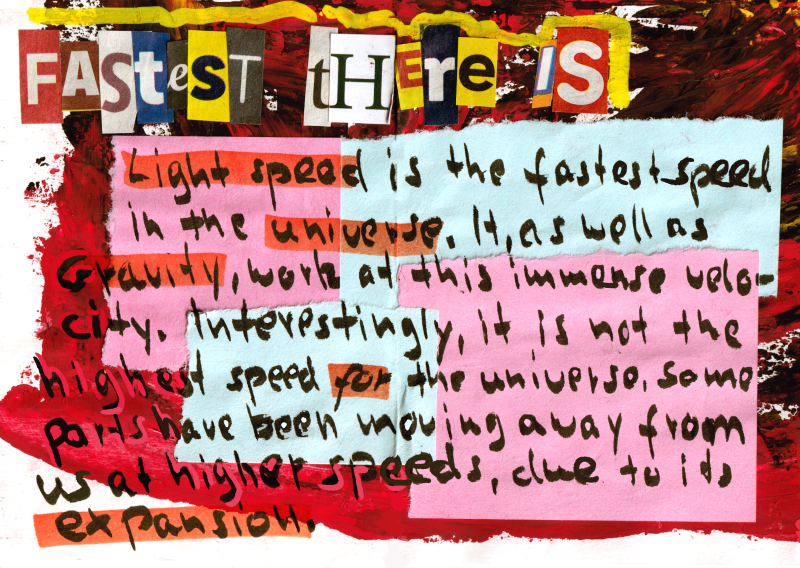 FAStesT tHEre iS
Light speed is the fastest speed
in the universe. It, as well as
Gravity, work at this immense velo-
city. Interestingly, it is not the
highest speed for the universe. Some
parts have been moving away from
us at higher speeds, due to its
expansion.